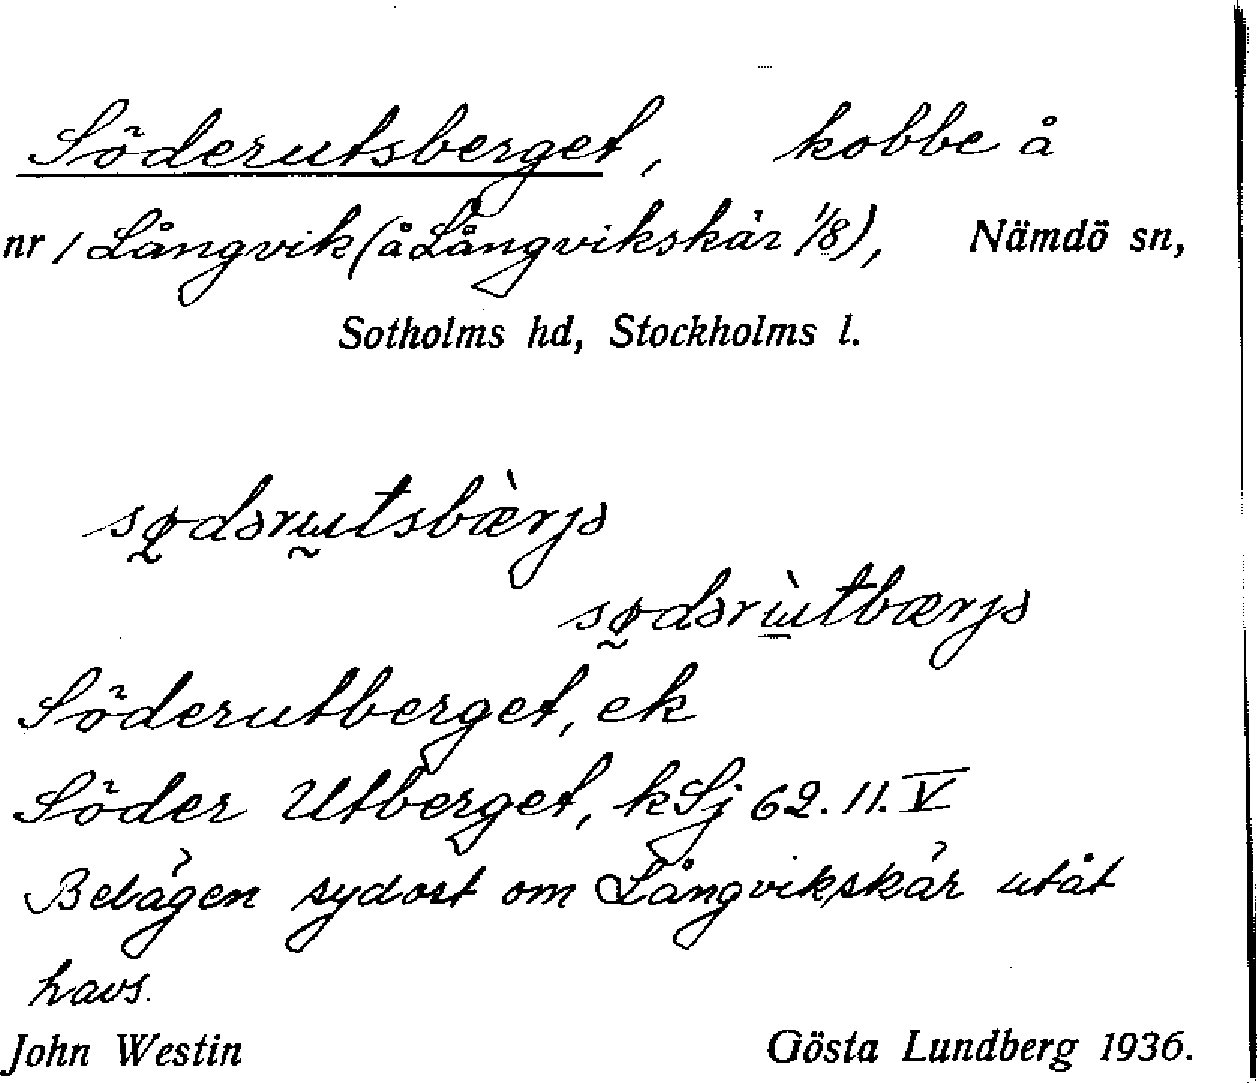 Söderutsberget, kobbe å
nr 1 Långvik (å Långvikskär 1/8), Nämdö sn,
Sotholms hd, Stockholms l.
Söderutberget, ek
Söder Utberget, kSj 62. 11. V
Belägen sydost om Långvikskär utåt
havs.
John Westin Gösta Lundberg 1936.